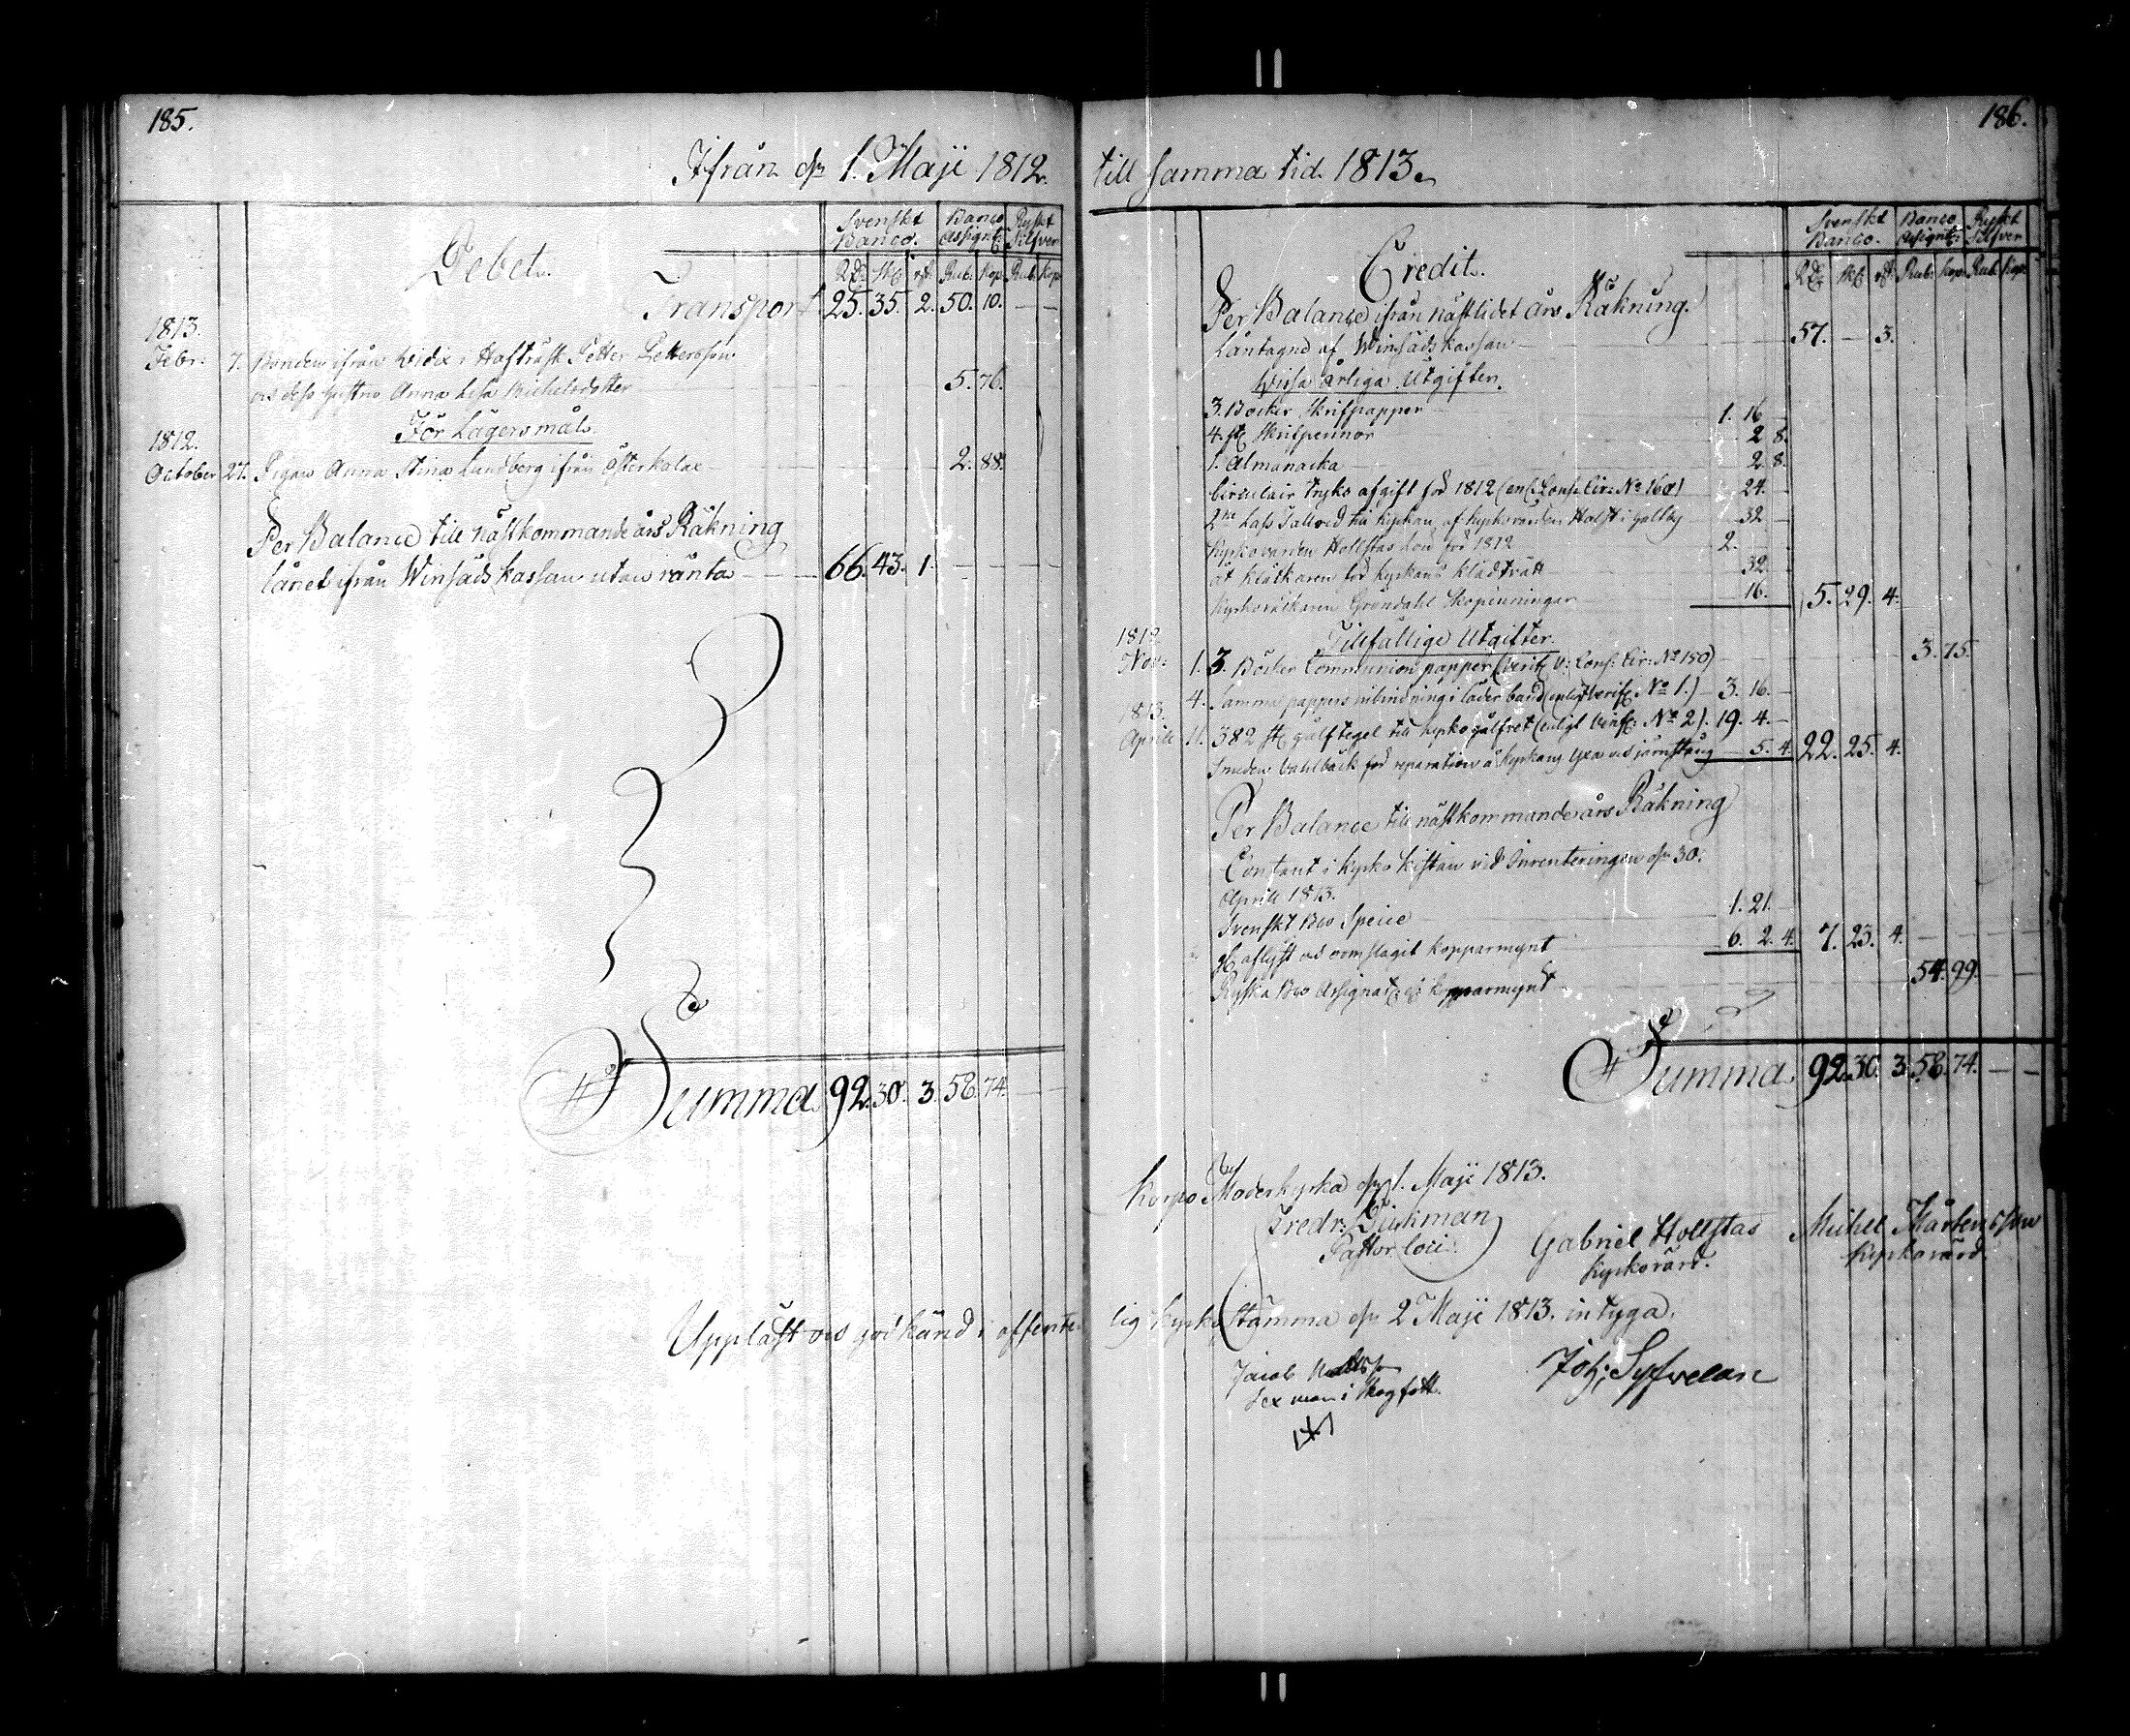 185.
Ifrån dn 1. Maji 1812.
Svenskt Banco. Banco Assignt: Ryskt Silfver
Debet.
Rd. sk. rst. Rub. Kop. Rub. Kop.
Transport 25. 35. 2. 50. 10. — —
1813.
Febr: 7. Bonden ifrån Petter Pettersson
dess hustru Anna Lisa Michelsdotter 5. 76.
För Lägersmål.
1812.
October 27. Pigan Anna Stina Lundberg ifrån Österkalax 2. 88.
Per Balance till nästkommande års Räkning
lånet ifrån Winsäds kassan utan ränta 66. 43. 1. — —
Summa 92. 30. 3. 58. 74. — —
Uppläst och godkänd i offente
186.
till samma tid 1813.
Svenskt Banco. Banco Assignt: Ryskt Silfver
Credit.
Rd. sk. rst. Rub. Kop. Rub. Kop.
Per Balance ifrån nästlidet års Räkning.
Låntagne af Winsäds kassan 57. — 3.
Wissa årliga Utgifter.
3. Böcker Skrifpapper 1. 16 —
4. st Skrifpennor 2. 8.
1. Almanacka 2. 8.
Circulair tryks afgift för 1812 (enl. Cons: Cir: No 160) 24. —
2ne Lass Tallved till Kyrkan af Kyrkovärden i Gallby 32 —
Kyrkovärden Hollstas Lön för 1812 2. —
åt Klåckaren för Kyrkans klädtvätt 32. —
Kyrkoväktaren Gröndahl Skopenningar 16. — 5. 29. 4.
1812. Tillfällige Utgifter.
Nov: 1. 3. Böcker Communion papper (verif. v: Cons: Cir: No 150) 3. 75.
4. Samma pappers inbindning i läder band (enligt verif: No 1.) 3. 16. —
1813.
Aprill 11. 382 st gålftegel till kyrkogålfvet (enligt Verif: No 2). 19. 4. —
Smeden Vahlbäck för reparation å Kyrkans järnstång 5. 4. 22. 25. 4.
Per Balance till nästkommande års Räkning
Contant i Kyrko kistan vid Inventeringen dn 30.
Aprill 1813.
Svenskt Bco Specie 1. 21. —
aflyst och omslagit kopparmynt 6. 2. 4. 7. 23. 4. — —
Ryska Bco Assignat: kopparmynt 54. 99. — —
Summa 92. 30. 3. 58. 74. — —
Korpo Moderkyrka dn 1. Maji 1813.
Fredr:
Pastor loci.
Gabriel Hollstas
Kyrkovärd.
Michel Mårtensson
Kyrkovärd.
lig Kyrko Stämma dn 2 Maji 1813. intyga.
Jacob
Sexman i
Joh: